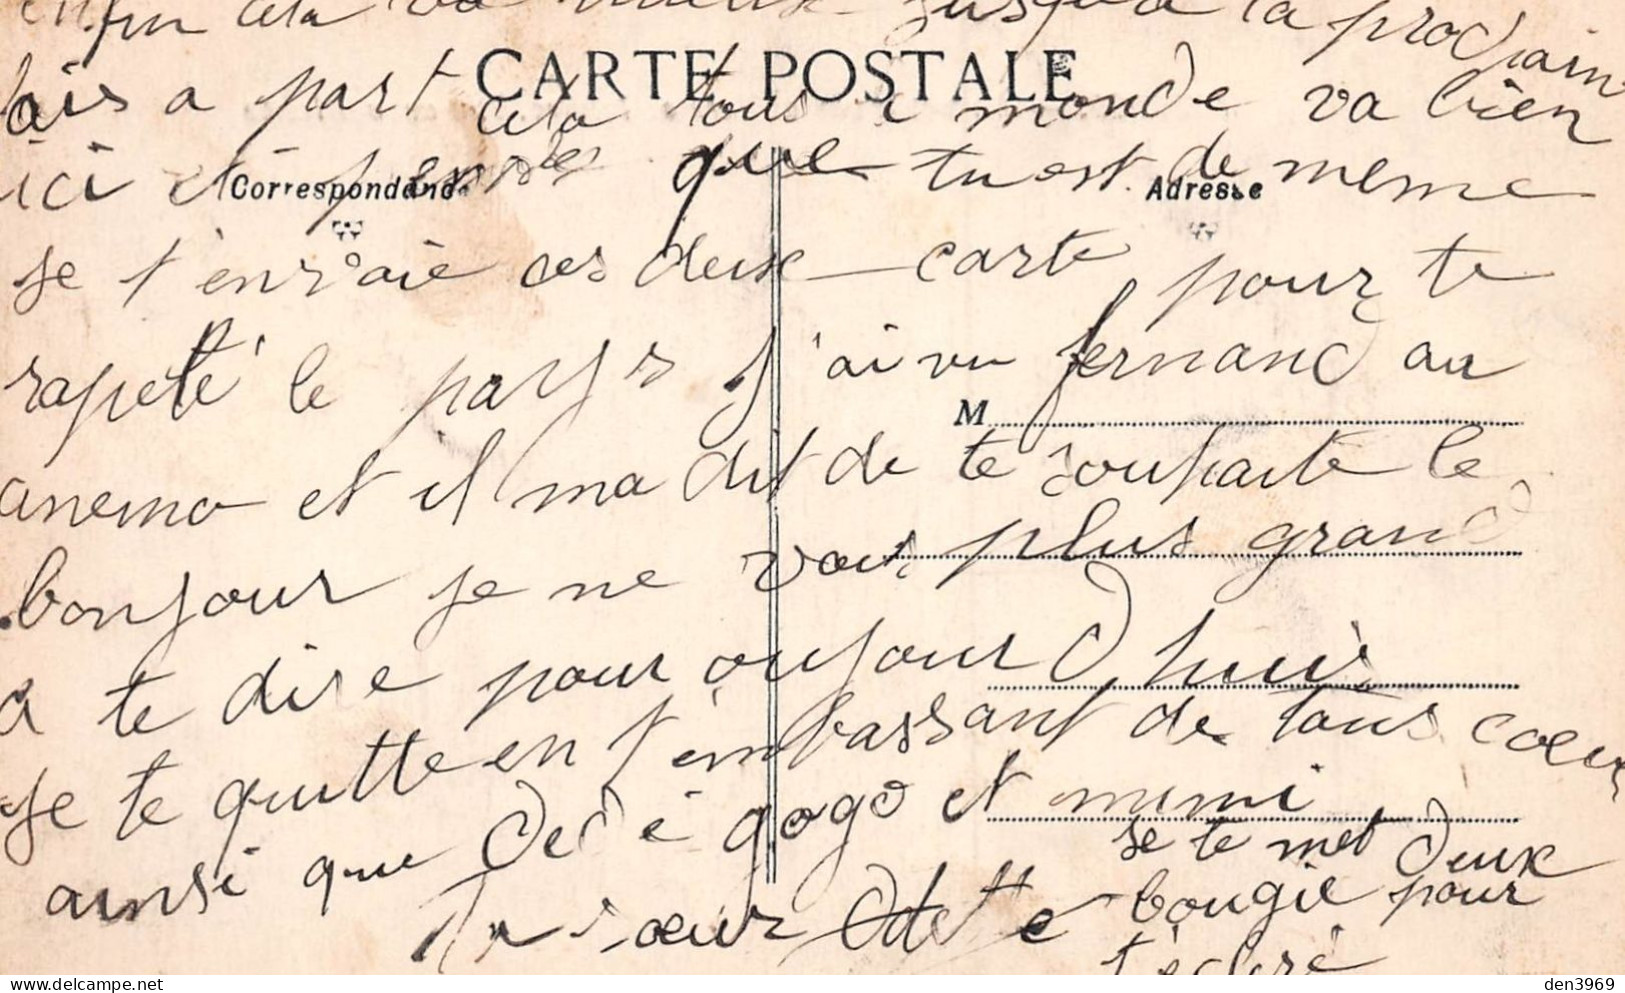 enfin cela va mieux jusqu'a la prochain
CARTE POSTALE
fois a part cela tous l monde va bien
ici et j'espere que tu est de meme
Correspondance
Adresse
je t'envoie ces deux carte pour te
rapelé le pays j'ai vu fernand au
M
anemo et il ma dit de te souhaite le
bonjour je ne vois plus grand
a te dire pour oujourd'hui
je te quitte en t'embrassant de tous coeur
ainsi que Dédé gogo et mimi
Ta soeur Odette
je te met deux
bougie pour
t'écleré
den3969